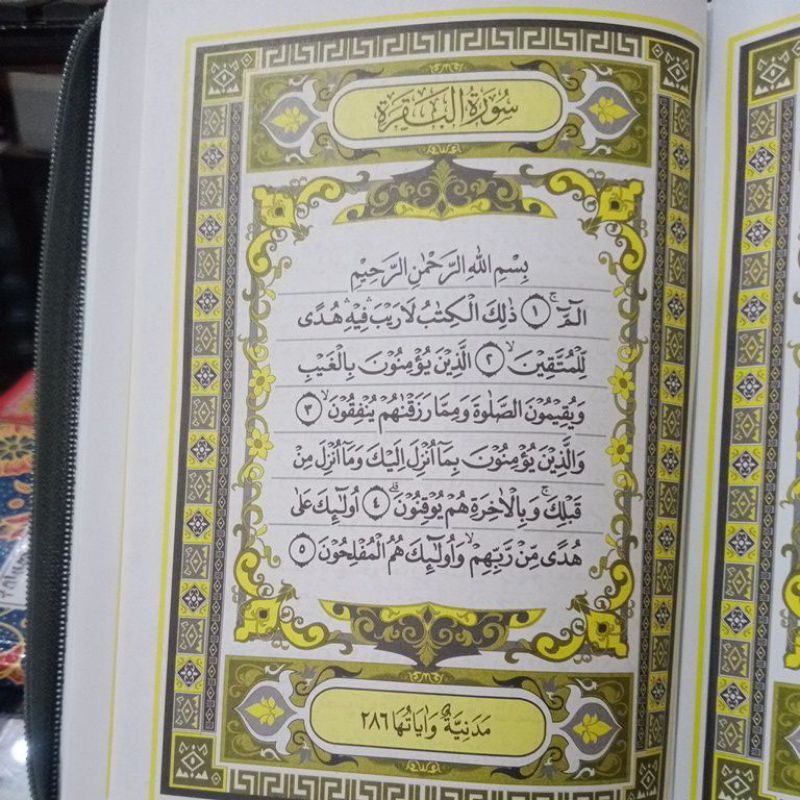 سُوْرَةُ الْبَقَرَةِ
بِسْمِ اللّٰهِ الرَّحْمٰنِ الرَّحِيْمِ
الۤمّۤ ۚ ١ ذٰلِكَ الْكِتٰبُ لَا رَيْبَ ۛ فِيْهِ ۛ هُدًى
لِّلْمُتَّقِيْنَ ۙ ٢ الَّذِيْنَ يُؤْمِنُوْنَ بِالْغَيْبِ
وَيُقِيْمُوْنَ الصَّلٰوةَ وَمِمَّا رَزَقْنٰهُمْ يُنْفِقُوْنَ ۙ ٣
وَالَّذِيْنَ يُؤْمِنُوْنَ بِمَآ اُنْزِلَ اِلَيْكَ وَمَآ اُنْزِلَ مِنْ
قَبْلِكَ ۚ وَبِالْاٰخِرَةِ هُمْ يُوْقِنُوْنَ ۗ ٤ اُولٰۤىِٕكَ عَلٰى
هُدًى مِّنْ رَّبِّهِمْ ۙ وَاُولٰۤىِٕكَ هُمُ الْمُفْلِحُوْنَ ٥
مَدَنِيَّةٌ وَاٰيَاتُهَا ٢٨٦